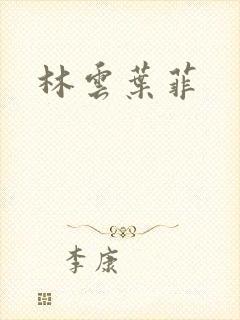 林雲葉菲
李康